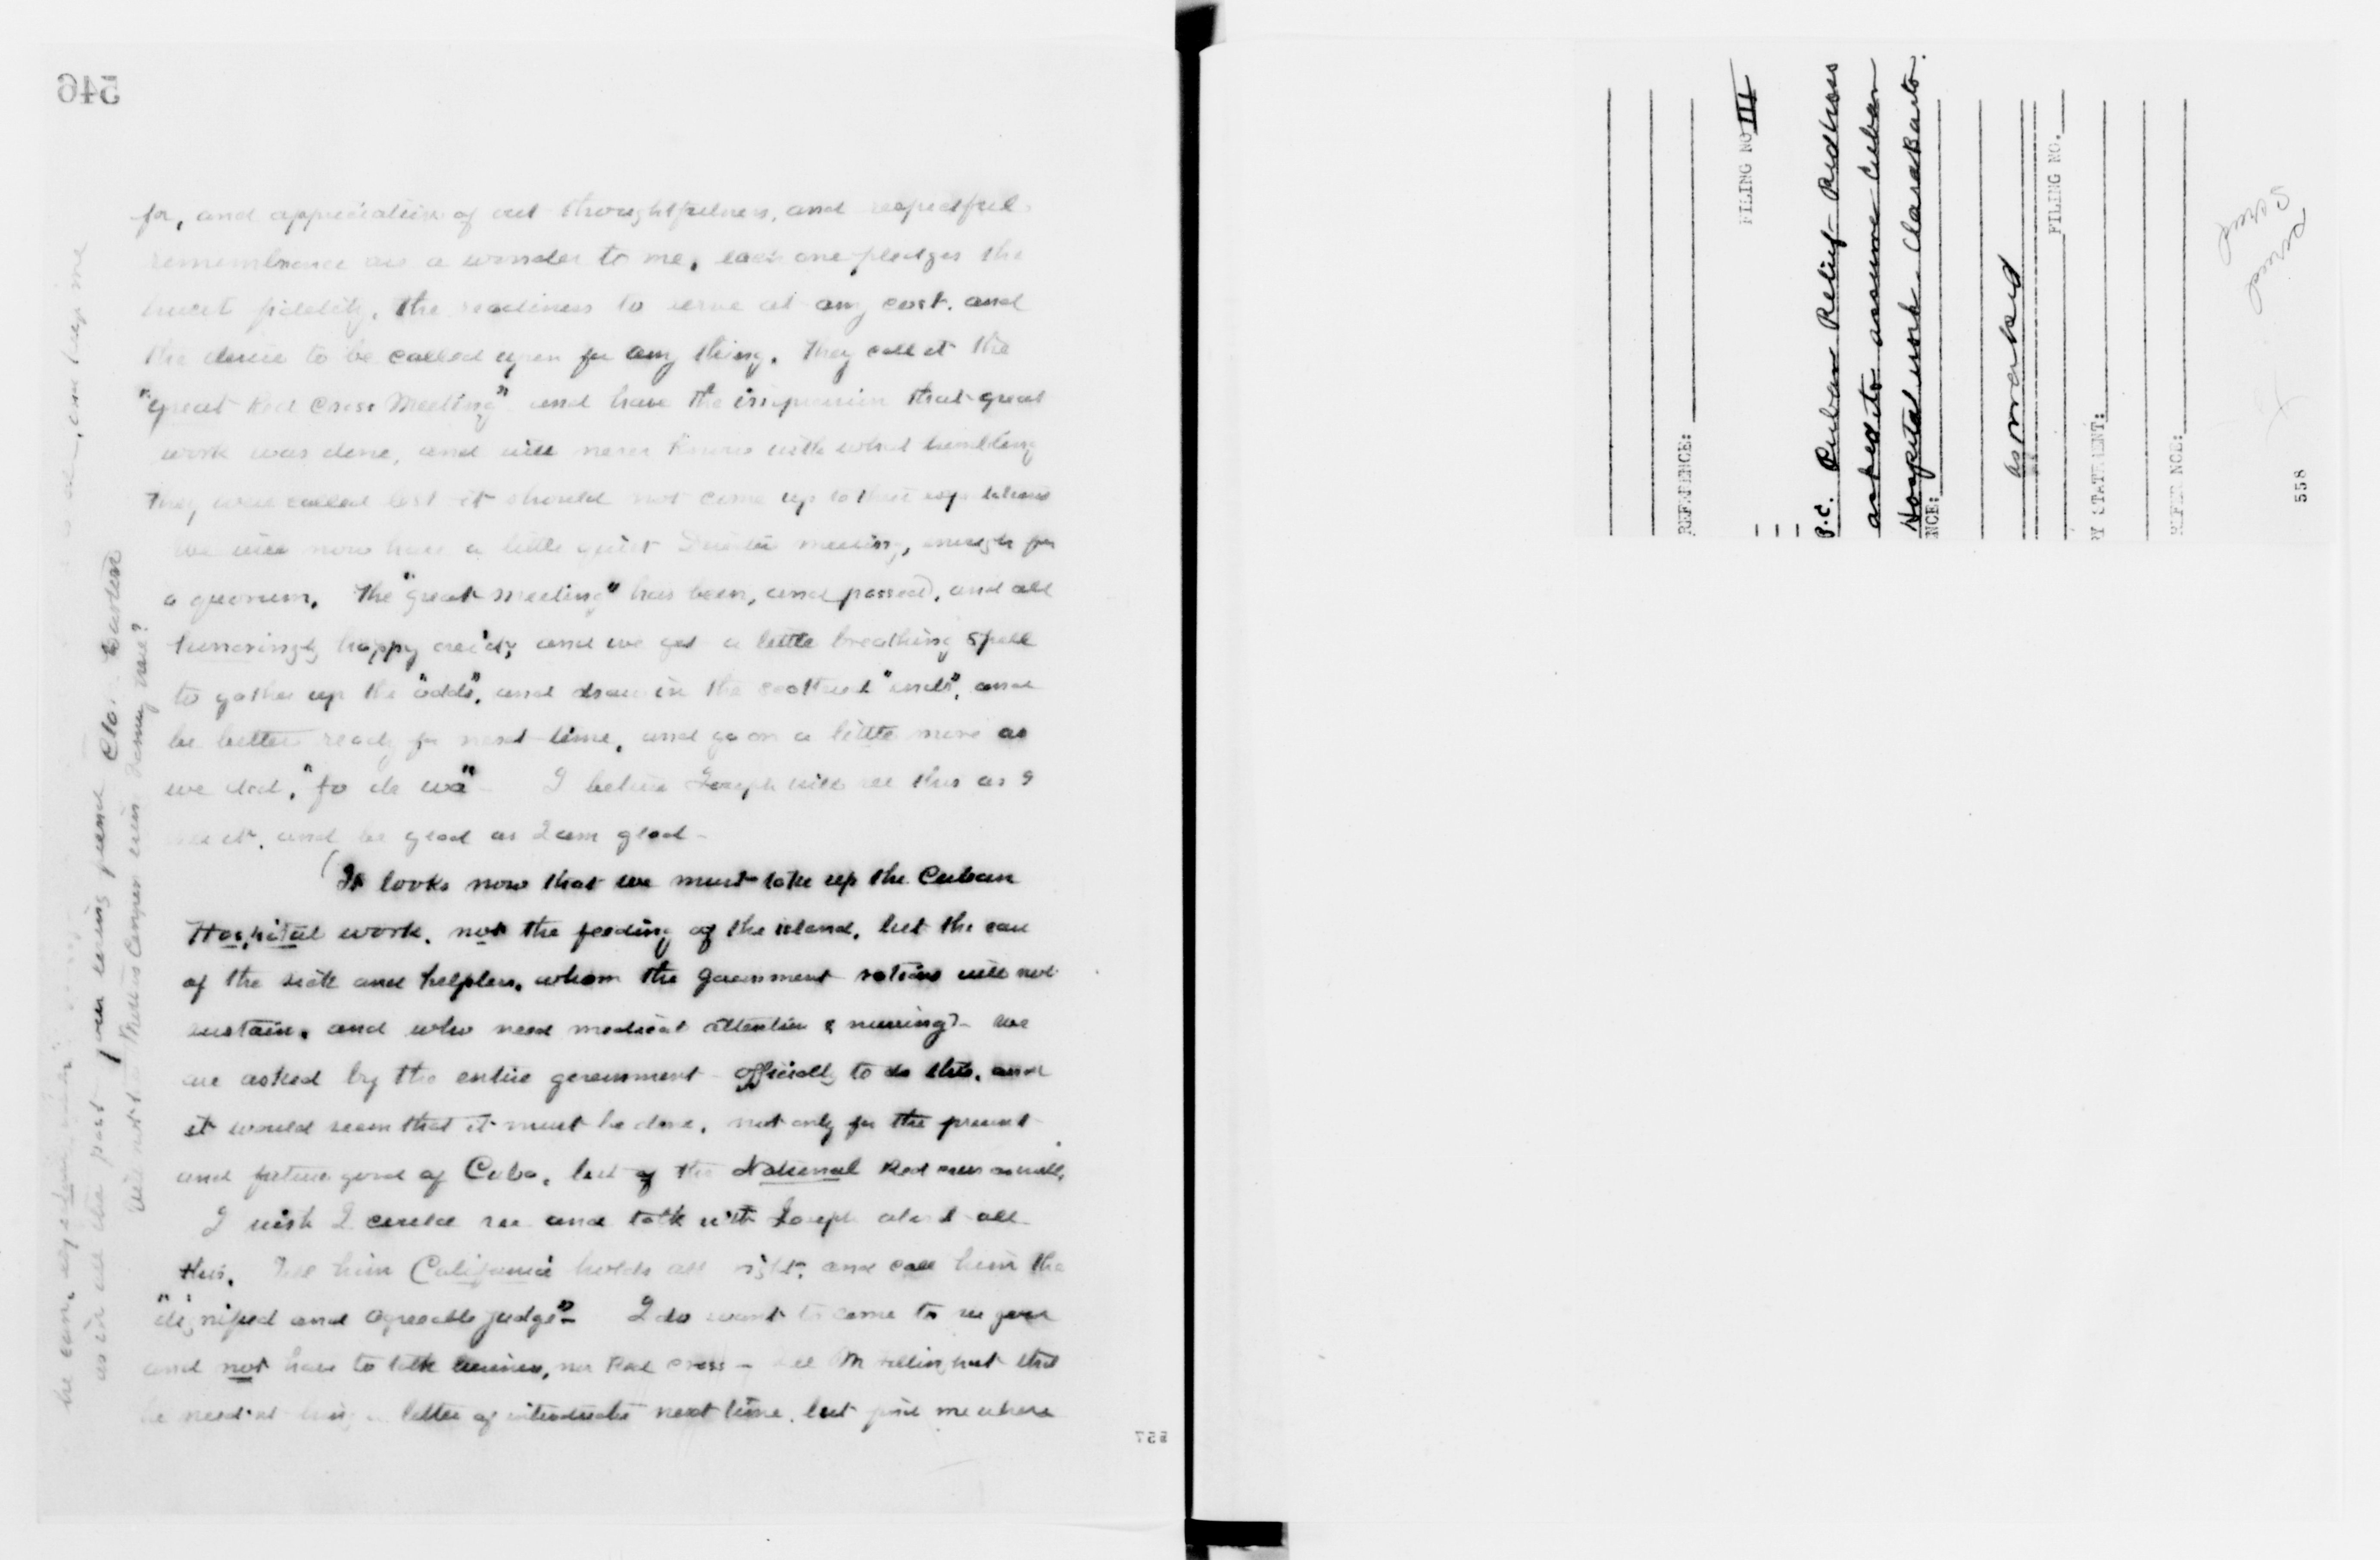 546
for, and appreciation of our thoughtfulness, and respectful
remembrance are a wonder to me, each one pledges the
fidelity, the readiness to serve at any cost, and
the desire to be called upon for any thing. They call it the
"great Red Cross Meeting" and have the impression that great
work was done, and will never know with what trembling
they were called lest it should not come up to their
We will now have a little quiet meeting, enough for
a quorum. The "great meeting" has been, and passed, and all
happy and we get a little breathing spell
to gather up the "odds", and draw in the scattered "ends", and
be better ready for next time, and go on a little more as
we did, I believe Joseph will see this as I
see it, and be glad as I am glad -
(It looks now that we must take up the Cuban
Hospital work, not the feeding of the island, but the care
of the sick and helpless, whom the government rations will not
sustain, and who need medical attention & nursing) - We
are asked by the entire government officially to do this, and
it would seem that it must be done, not only for the present
and future good of Cuba, but of the National Red Cross as well.
I wish I could see and talk with Joseph about all
this. Tell him California holds all right, and call him the
"dignified and agreeable judge" - I do want to come to see you
and not have to talk business, nor Red Cross - that
he need not bring a letter of introduction next time, but find me where
he can,
as in all the past your loving friend Cla. Barton
557
REFERENCE:
FILING NO III
P.C. Cuban Relief - Red Cross
asked to assume Cuban
Hospital work - Clara Barton.
NCE:
as marked
FILING NO.
Y STATEMENT:
REFER NCE:
558